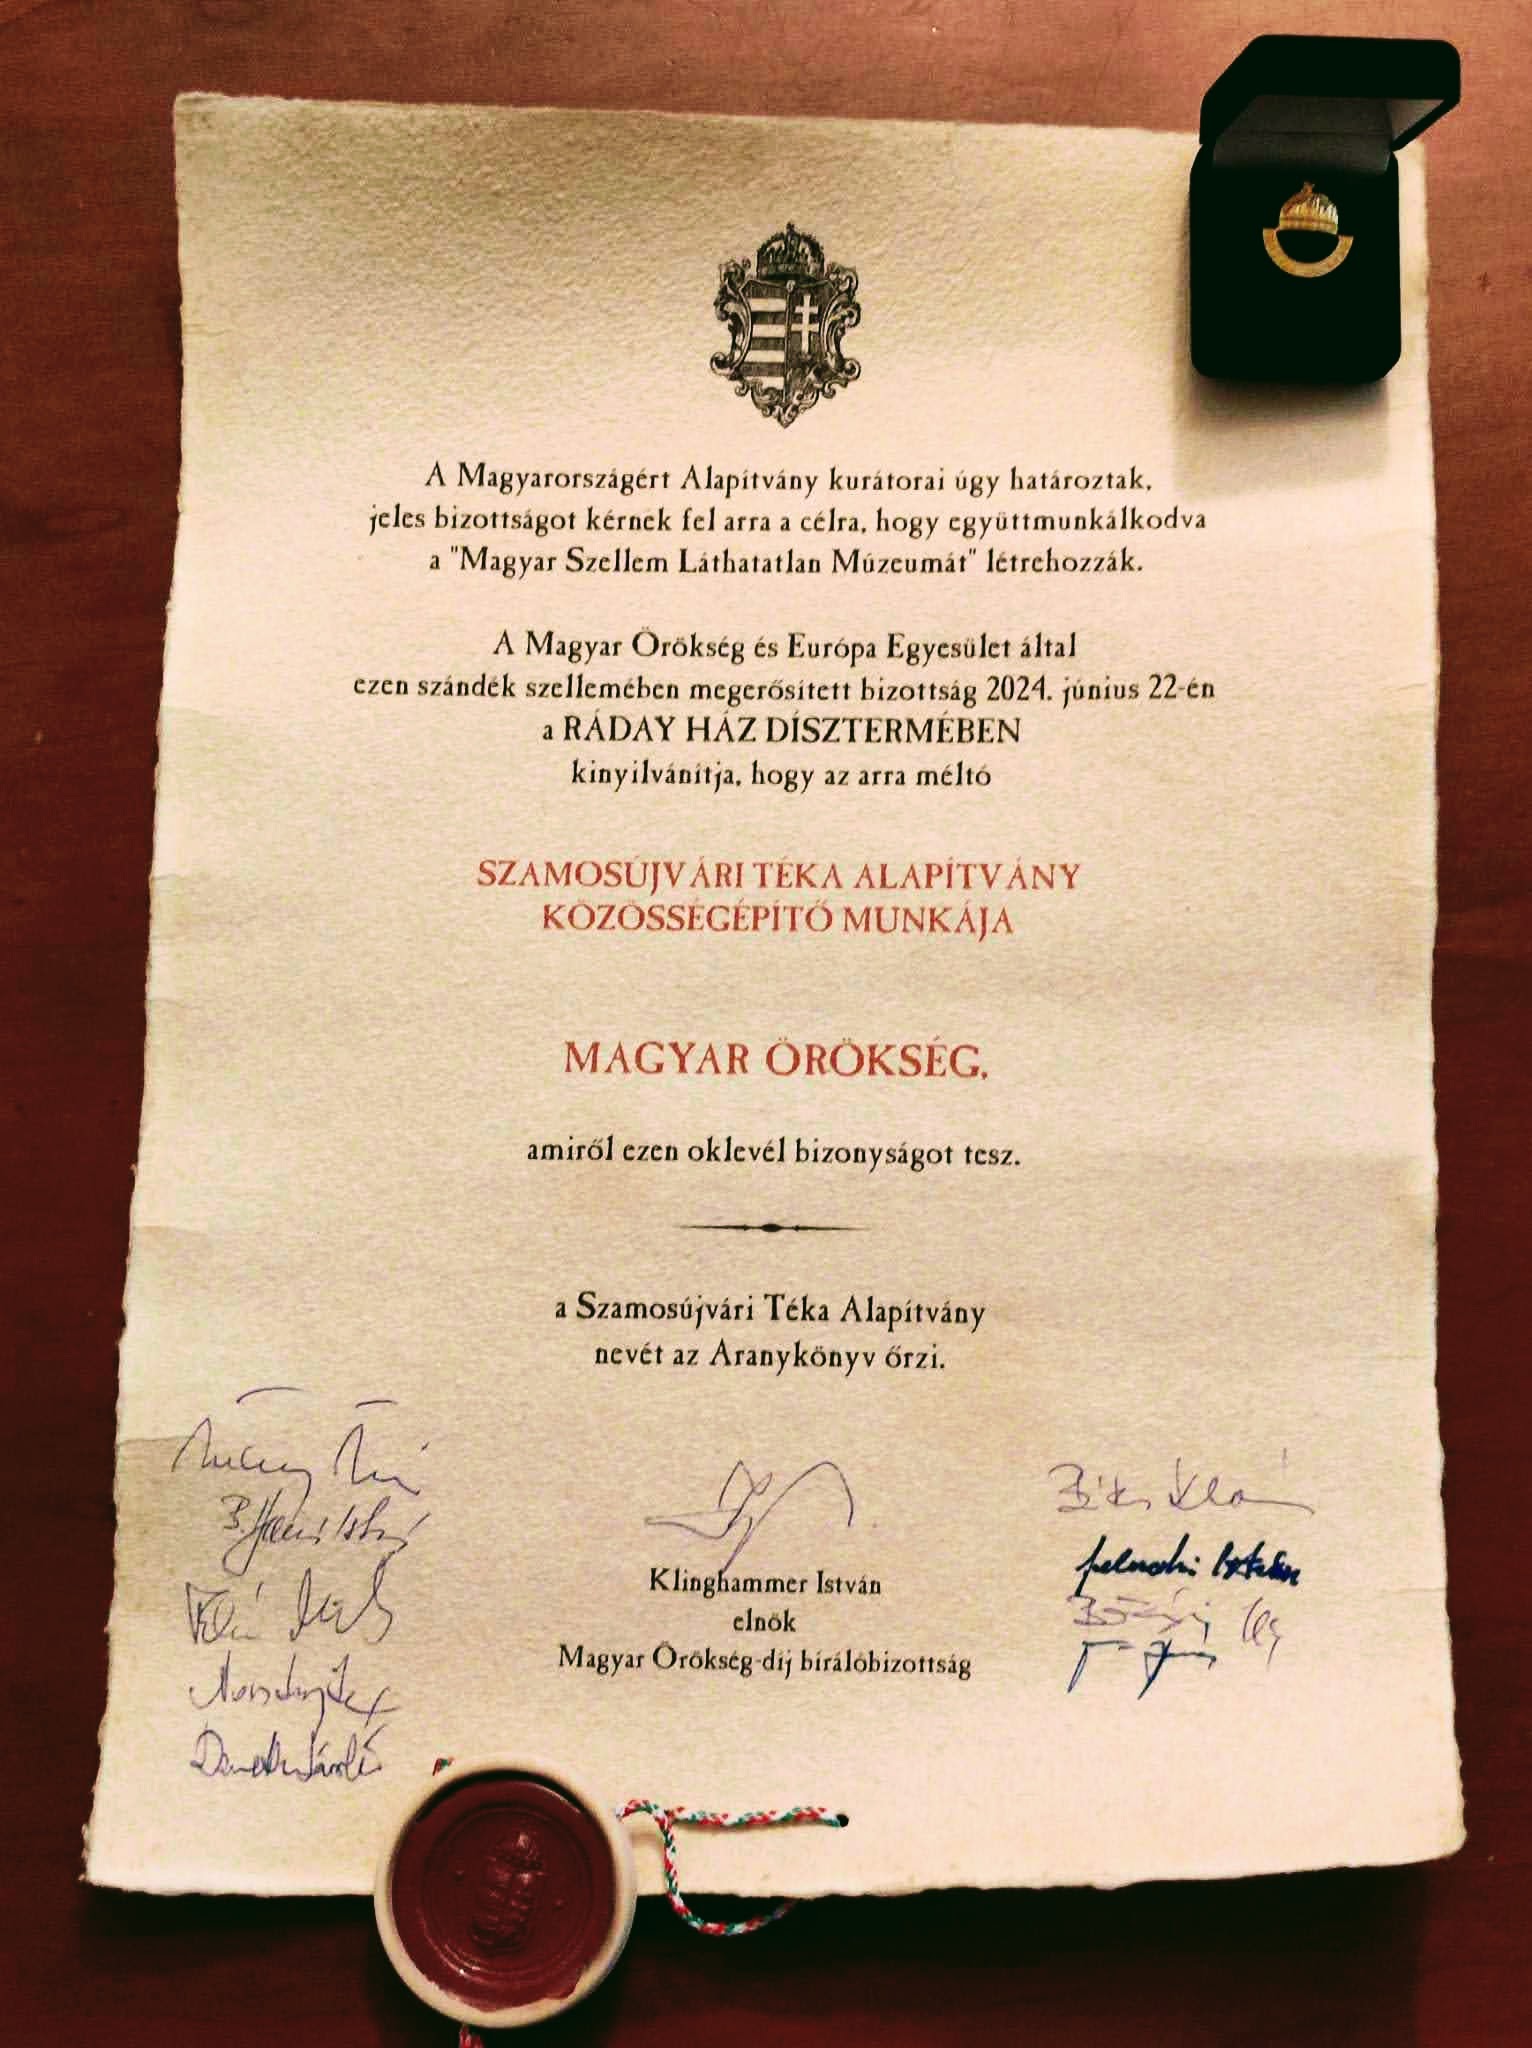 A Magyarországért Alapítvány kurátorai úgy határoztak,
jeles bizottságot kérnek fel arra a célra, hogy együttmunkálkodva
a "Magyar Szellem Láthatatlan Múzeumát" létrehozzák.
A Magyar Örökség és Európa Egyesület által
ezen szándék szellemében megerősített bizottság 2024. június 22-én
a RÁDAY HÁZ DÍSZTERMÉBEN
kinyilvánítja, hogy az arra méltó
SZAMOSÚJVÁRI TÉKA ALAPÍTVÁNY
KÖZÖSSÉGÉPÍTŐ MUNKÁJA
MAGYAR ÖRÖKSÉG,
amiről ezen oklevél bizonyságot tesz.
a Szamosújvári Téka Alapítvány
nevét az Aranykönyv őrzi.
Klinghammer István
elnök
Magyar Örökség-díj bírálóbizottság